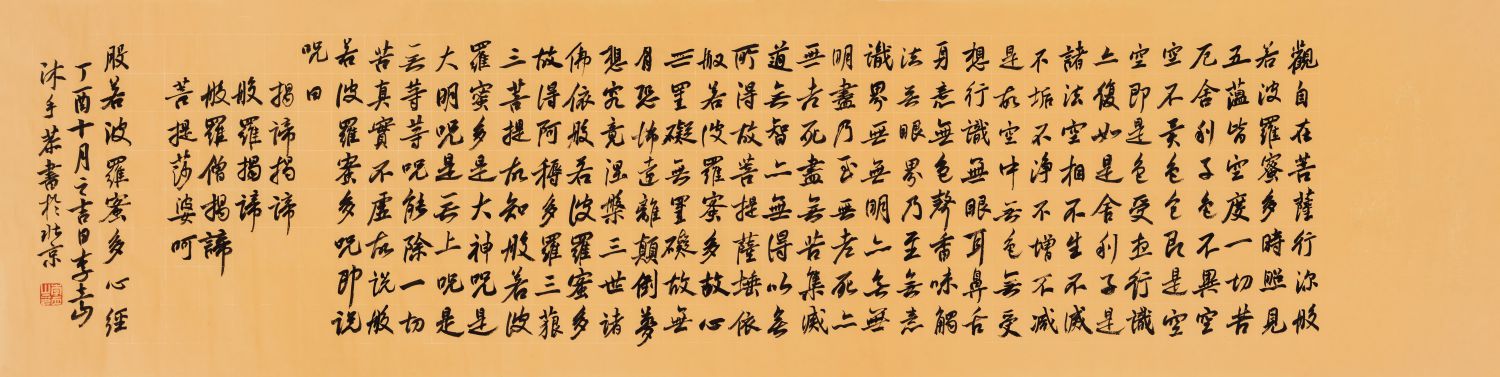 觀自在菩薩行深般
若波羅蜜多時照見
五蘊皆空度一切苦
厄舍利子色不異空
空不異色色即是空
空即是色受想行識
亦復如是舍利子是
諸法空相不生不滅
不垢不淨不增不減
是故空中无色無受
想行識無眼耳鼻舌
身意無色聲香味觸
法无眼界乃至無意
識界無無明亦無無
明盡乃至無老死亦
無老死盡無苦集滅
道無智亦無得以無
所得故菩提薩埵依
般若波羅蜜多故心
無罣礙无罣礙故無
有恐怖遠離顛倒夢
想究竟涅槃三世諸
佛依般若波羅蜜多
故得阿耨多羅三藐
三菩提故知般若波
羅蜜多是大神呪是
大明呪是无上呪是
无等等呪能除一切
苦真實不虛故說般
若波羅蜜多呪即說
呪曰
揭諦揭諦
般羅揭諦
般羅僧揭諦
菩提莎婆呵
般若波羅蜜多心經
丁酉十月之吉日李
沐手恭書於北京